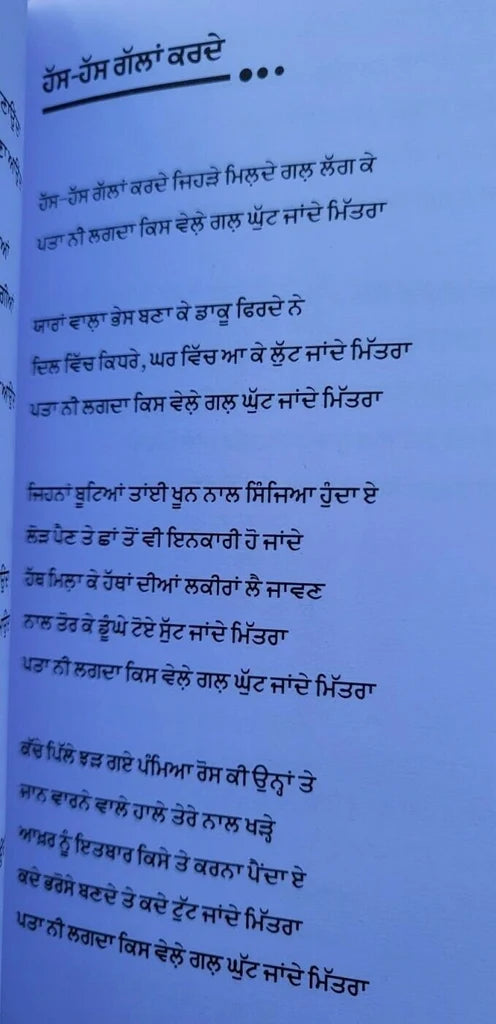 ਹੱਸ-ਹੱਸ ਗੱਲਾਂ ਕਰਦੇ ...
ਹੱਸ-ਹੱਸ ਗੱਲਾਂ ਕਰਦੇ ਜਿਹੜੇ ਮਿਲ਼ਦੇ ਗਲ਼ ਲੱਗ ਕੇ
ਪਤਾ ਨੀ ਲਗਦਾ ਕਿਸ ਵੇਲ਼ੇ ਗਲ਼ ਘੁੱਟ ਜਾਂਦੇ ਮਿੱਤਰਾ
ਯਾਰਾਂ ਵਾਲ਼ਾ ਭੇਸ ਬਣਾ ਕੇ ਡਾਕੂ ਫਿਰਦੇ ਨੇ
ਦਿਲ ਵਿੱਚ ਕਿਧਰੇ, ਘਰ ਵਿੱਚ ਆ ਕੇ ਲੁੱਟ ਜਾਂਦੇ ਮਿੱਤਰਾ
ਪਤਾ ਨੀ ਲਗਦਾ ਕਿਸ ਵੇਲ਼ੇ ਗਲ਼ ਘੁੱਟ ਜਾਂਦੇ ਮਿੱਤਰਾ
ਜਿਹਨਾਂ ਬੂਟਿਆਂ ਤਾਂਈ ਖੂਨ ਨਾਲ ਸਿੰਜਿਆ ਹੁੰਦਾ ਏ
ਲੋੜ ਪੈਣ ਤੇ ਛਾਂ ਤੋਂ ਵੀ ਇਨਕਾਰੀ ਹੋ ਜਾਂਦੇ
ਹੱਥ ਮਿਲ਼ਾ ਕੇ ਹੱਥਾਂ ਦੀਆਂ ਲਕੀਰਾਂ ਲੈ ਜਾਵਣ
ਨਾਲ ਤੋਰ ਕੇ ਡੂੰਘੇ ਟੋਏ ਸੁੱਟ ਜਾਂਦੇ ਮਿੱਤਰਾ
ਪਤਾ ਨੀ ਲਗਦਾ ਕਿਸ ਵੇਲ਼ੇ ਗਲ਼ ਘੁੱਟ ਜਾਂਦੇ ਮਿੱਤਰਾ
ਕੱਚੇ ਪਿੱਲੇ ਝੜ ਗਏ ਪੰਮਿਆ ਰੋਸ ਕੀ ਉਨ੍ਹਾਂ ਤੇ
ਜਾਨ ਵਾਰਨੇ ਵਾਲੇ ਹਾਲੇ ਤੇਰੇ ਨਾਲ ਖੜ੍ਹੇ
ਆਖ਼ਰ ਨੂੰ ਇਤਬਾਰ ਕਿਸੇ ਤੇ ਕਰਨਾ ਪੈਂਦਾ ਏ
ਕਦੇ ਭਰੋਸੇ ਬਣਦੇ ਤੇ ਕਦੇ ਟੁੱਟ ਜਾਂਦੇ ਮਿੱਤਰਾ
ਪਤਾ ਨੀ ਲਗਦਾ ਕਿਸ ਵੇਲ਼ੇ ਗਲ਼ ਘੁੱਟ ਜਾਂਦੇ ਮਿੱਤਰਾ